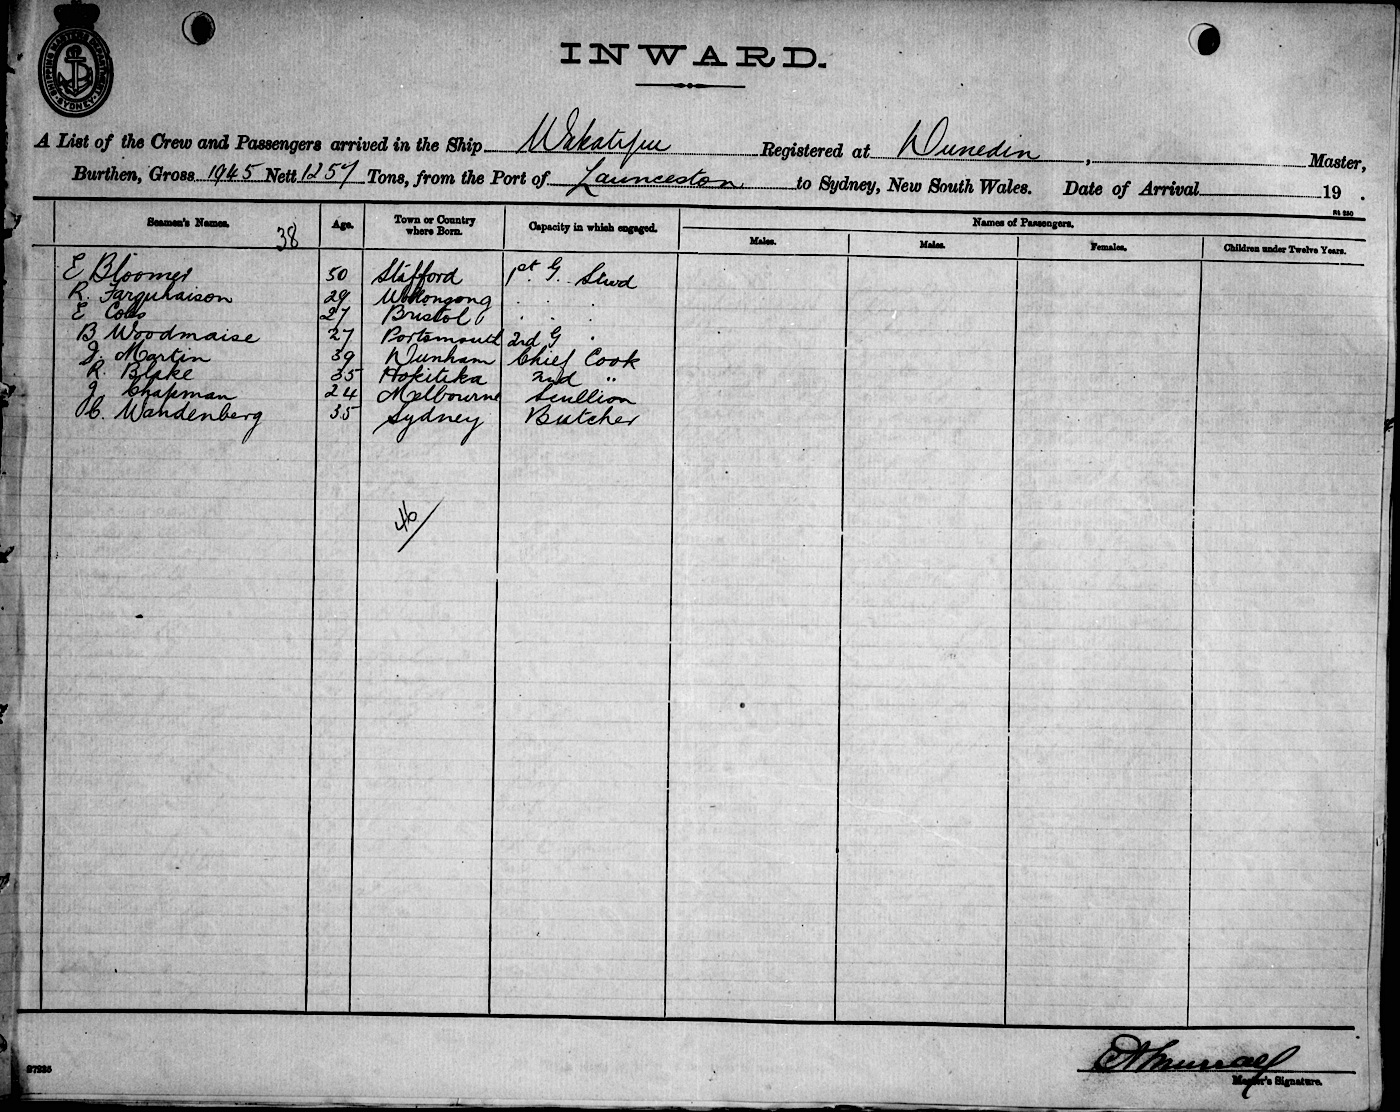 SHIPPING MASTER'S DEPARTMENT SYDNEY
INWARD.
A List of the Crew and Passengers arrived in the Ship Wakatipu Registered at Dunedin, Master,
Burthen, Gross 1945 Nett 1257 Tons, from the Port of Launceston to Sydney, New South Wales. Date of Arrival 19 .
Seamen's Names. 38 Age. Town or Country where Born. Capacity in which engaged. Names of Passengers.
Males. Males. Females. Children under Twelve Years.
E Bloomer 50 Stafford 1st G. Stwd
R. Farquharson 29 Wollongong . . .
E Coles 27 Bristol . . .
B Woodmaise 27 Portsmouth 2nd G .
J. Martin 39 Dunham Chief Cook
R. Blake 35 Hokitika 2nd "
J Chapman 24 Melbourne Scullion
C. Wandenberg 35 Sydney Butcher
46
Master's Signature.